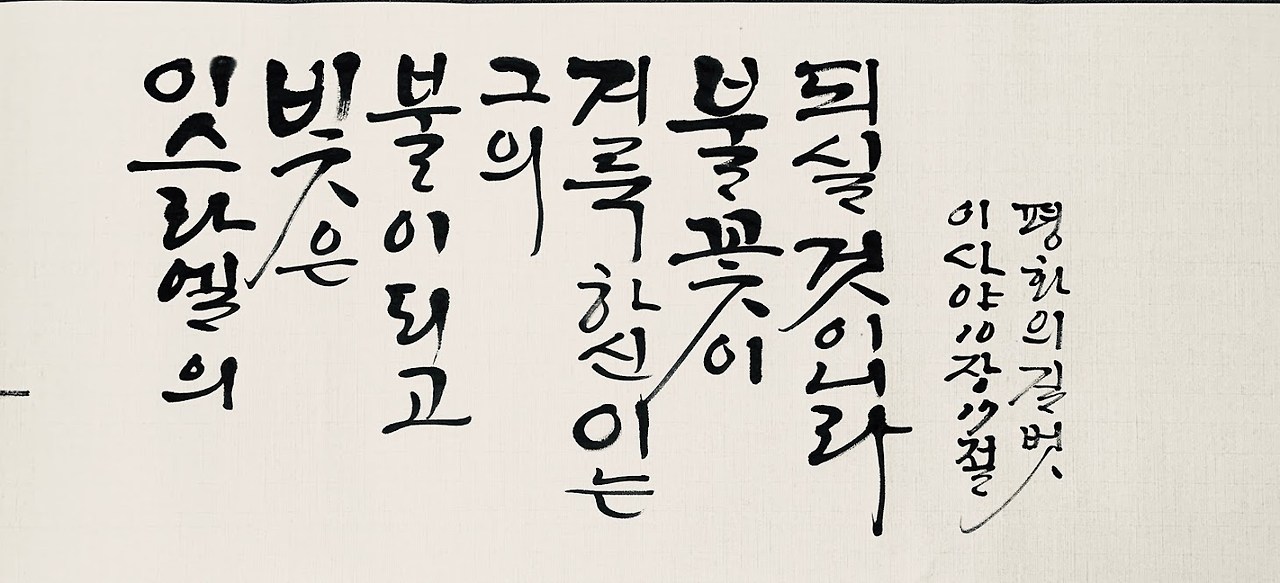 잇스라엘의
빛은
불이되고
그의
거룩하신이는
불꽃이
되실것이니라
이사야10장17절
평화의길벗